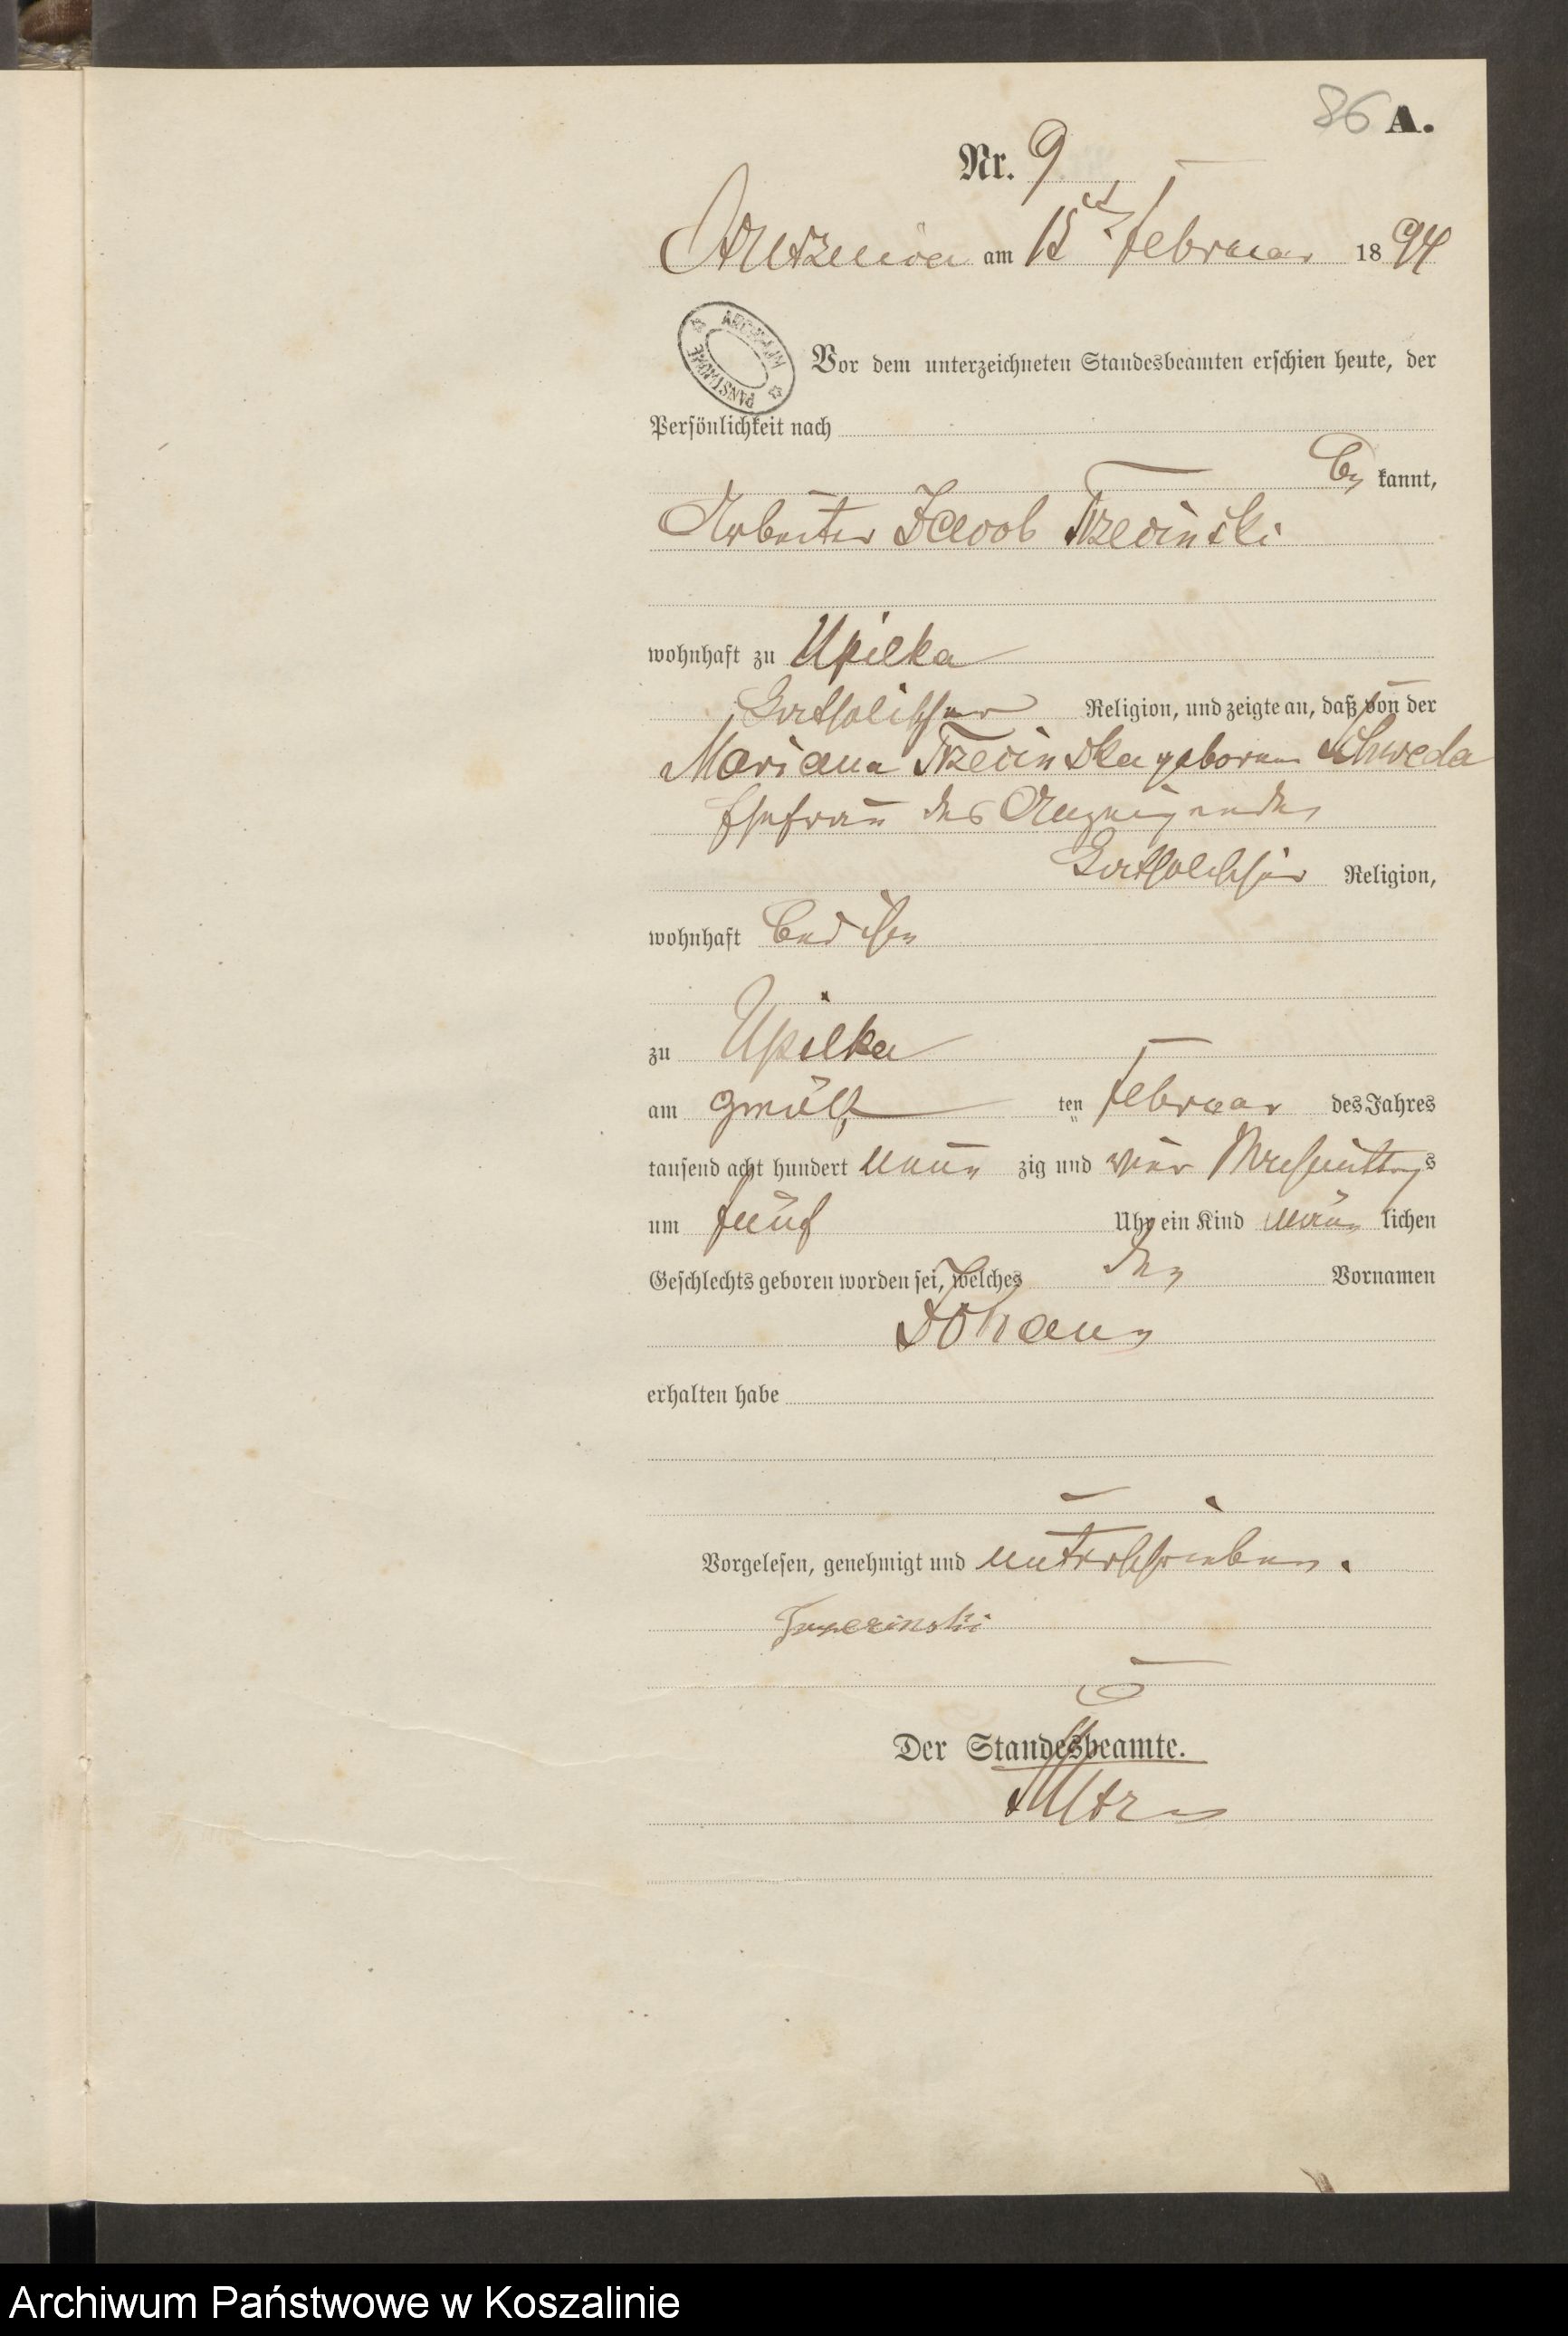 86 A.
Nr. 9
am 15ten Februar 1894
ARCHIWUM PAŃSTWOWE
Vor dem unterzeichneten Standesbeamten erschien heute, der
Persönlichkeit nach
be kannt,
Arbeiter Jacob Trzecinski
wohnhaft zu Upilka
katholischer Religion, und zeigte an, daß von der
Mariana Trzecinska geborenen Schweda
Ehefrau des Anzeigenden
katholischer Religion,
wohnhaft bei ihm
zu Upilka
am zwölf ten Februar des Jahres
tausend acht hundert neun zig und vier Nachmittags
um fünf Uhr ein Kind männ lichen
Geschlechts geboren worden sei, welches den Vornamen
Johann
erhalten habe
Vorgelesen, genehmigt und unterschrieben.
Der Standesbeamte.
Archiwum Państwowe w Koszalinie